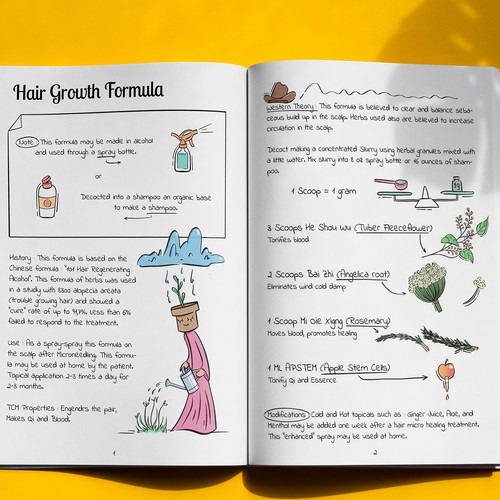 Hair Growth Formula
Note : This formula may be made in alcohol
and used through a spray bottle.
or
Decocted into a shampoo an organic base
to make a shampoo.
History : This formula is based on the
Chinese formula "101 Hair Regenerating
Alcohol". This formula of herbs was used
in a study with 8300 alopecia areata
(trouble growing hair) and showed a
"cure" rate of up to
Less than 6%
failed to respond to the treatment.
Use : As a spray-spray this formula on
the scalp after Microneedling. This formu-
la may be used at home by the patient.
Topical application 2-3 times a day for
2-3 months.
TCM Properties : Engenders the pair,
Makes Qi and Blood.
1
Western Theory : This formula is believed to clear and balance seba-
ceous build up in the scalp. Herbs used also are believed to increase
circulation in the scalp.
Decoct making a concentrated Slurry using herbal granules mixed with
a little water. Mix slurry into 8 oz spray bottle or 16 ounces of sham-
poo.
1 Scoop = 1 gram
3 Scoops He Shou Wu (Tuber Fleeceflower)
Tonifies blood
2 Scoops Bai Zhi (Angelica root)
Eliminates wind cold damp
1 Scoop Mi Die Xiang (Rosemary)
Moves blood, promotes healing
1 ML APSTEM (Apple Stem Cells)
Tonify Qi and Essence
Modifications : Cold and Hot topicals such as : Ginger Juice, Aloe, and
Menthol may be added one week after a hair micro healing treatment.
This "enhanced" spray may be used at home.
2